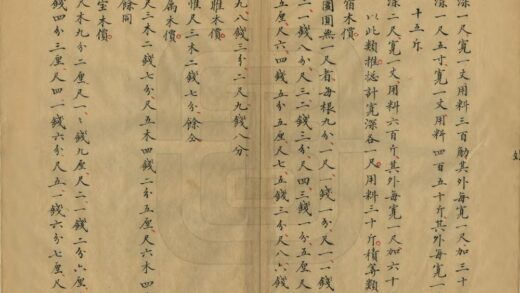 深一尺寬一丈用料三百觔其外每寬一尺加三十
深一尺五寸寬一丈用料四百五十斤其外每寬一
十五斤
深二尺寬一丈用料六百斤其外每寬一尺加六十
以此類推總計寬深各一尺用料三十斤積算類
宿木價
圍圓無一尺者每根九分一尺一錢一分尺一一錢
一錢八分尺三二錢三分尺四三錢一分五厘尺
五厘尺六四錢五分五厘尺七五錢三分尺八六錢
九八錢三分二尺九錢八分
雅木價
惟尺三木二錢七分餘仝
屬木價
尺三木二錢七分尺五木四錢二分五厘尺六木四
餘同
宝木價
尺木九分二厘尺一一錢九厘尺二一錢二分六厘
四分三厘尺四一錢六分尺五一錢六分七厘尺